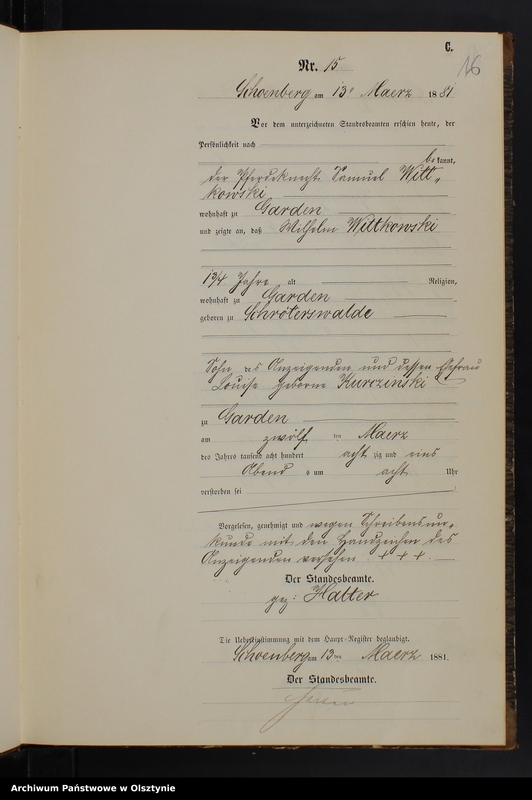 C.
16
Nr. 15
Schoenberg am 13t Maerz 1881
Vor dem unterzeichneten Standesbeamten erschien heute, der
Persönlichkeit nach
be kannt,
der Pferdeknecht Samuel Witt-
kowski
wohnhaft zu Garden
und zeigte an, daß Wilhelm Wittkowski
1 3/4 Jahre alt Religion,
wohnhaft zu Garden
geboren zu Schröterswalde
Sohn des Anzeigenden und dessen Ehefrau
Louise geborne Kurczinski
zu Garden
am zwölf ten Maerz
des Jahres tausend acht hundert acht zig und eins
Abend s um acht Uhr
verstorben sei
Vorgelesen, genehmigt und wegen Schreibensun-
kunde mit den Handzeichen des
Anzeigenden versehen + + +.
Der Standesbeamte.
gez: Halter
Die Uebereinstimmung mit dem Haupt-Register beglaubigt.
Schoenberg am 13 ten Maerz 1881.
Der Standesbeamte.
Archiwum Państwowe w Olsztynie